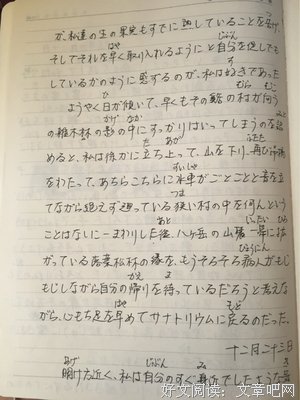 が、私達の生の果実もすでに熟していることを告げ
そしてそれを早く取り入れるようにと自分を促しでも
しているかのように感ずるのが、私は好きであった
ようやく日が傾いて、早くもその谿の村が向う
の雑木林の影の中にすっかりはいってしまうのを認
めると、私は徐かに立ち上って、山を下り、再び吊橋
をわたって、あちらこちらに水車がごとごとと音を立
てながら絶えず廻っている狭い村の中を何んという
ことはなしに一まわりした後、八ヶ岳の山麓一帯に拡
がっている落葉松林の縁を、もうそろそろ病人がもじ
もじしながら自分の帰りを待っているだろうと考えな
がら、心もち足を早めてサナトリウムに戻るのだった。
十二月二十三日
明け方近く、私は自分のすぐ身近でしたような
好文阅读：文章吧网